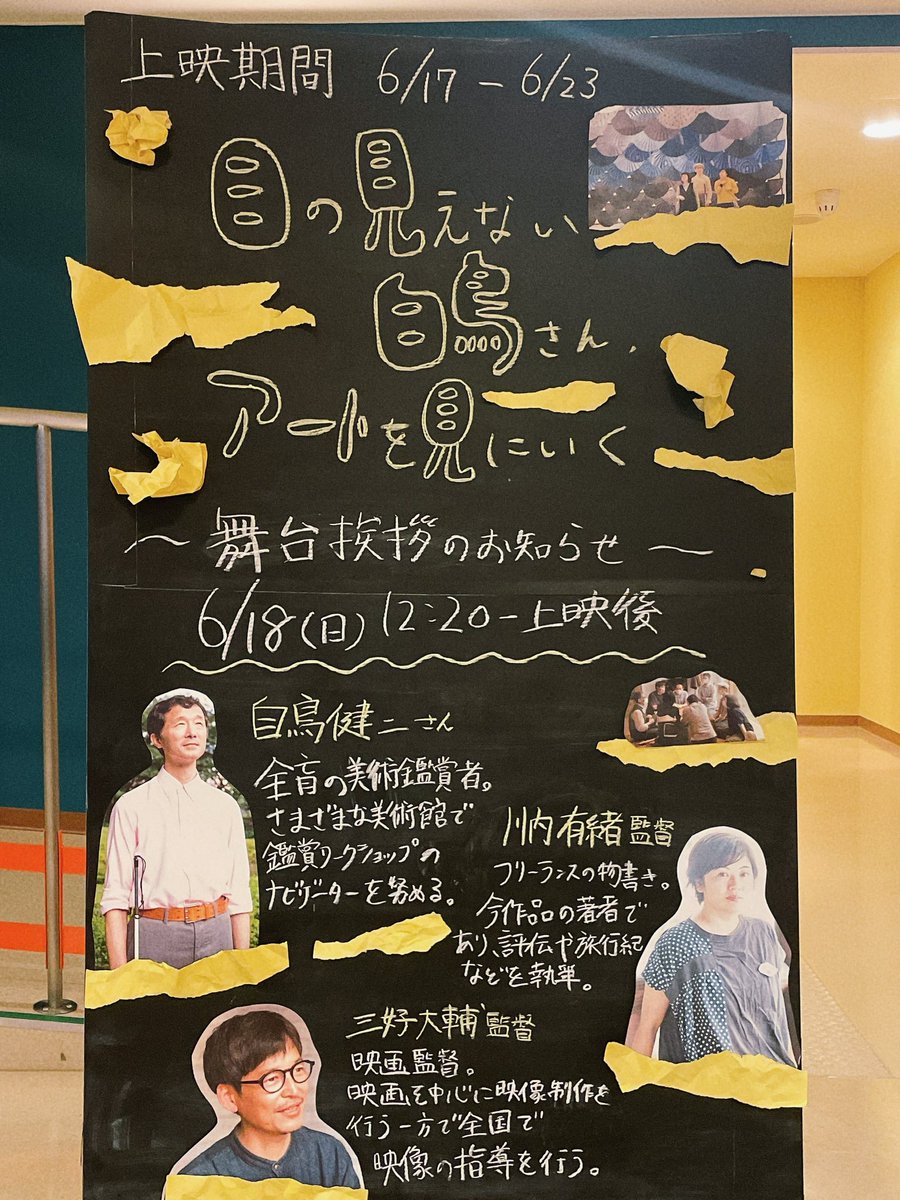 上映期間 6/17 - 6/23
目の見えない
白鳥さん、
アートを見にいく
〜 舞台挨拶のお知らせ 〜
6/18(日) 12:20-上映後
白鳥健二さん
全盲の美術鑑賞者。
さまざまな美術館で
鑑賞ワークショップの
ナビゲーターを努める。
川内有緒監督
フリーランスの物書き。
今作品の著者で
あり、評伝や旅行紀
などを執筆。
三好大輔監督
映画監督。
映画を中心に映像制作を
行う一方で全国で
映像の指導を行う。